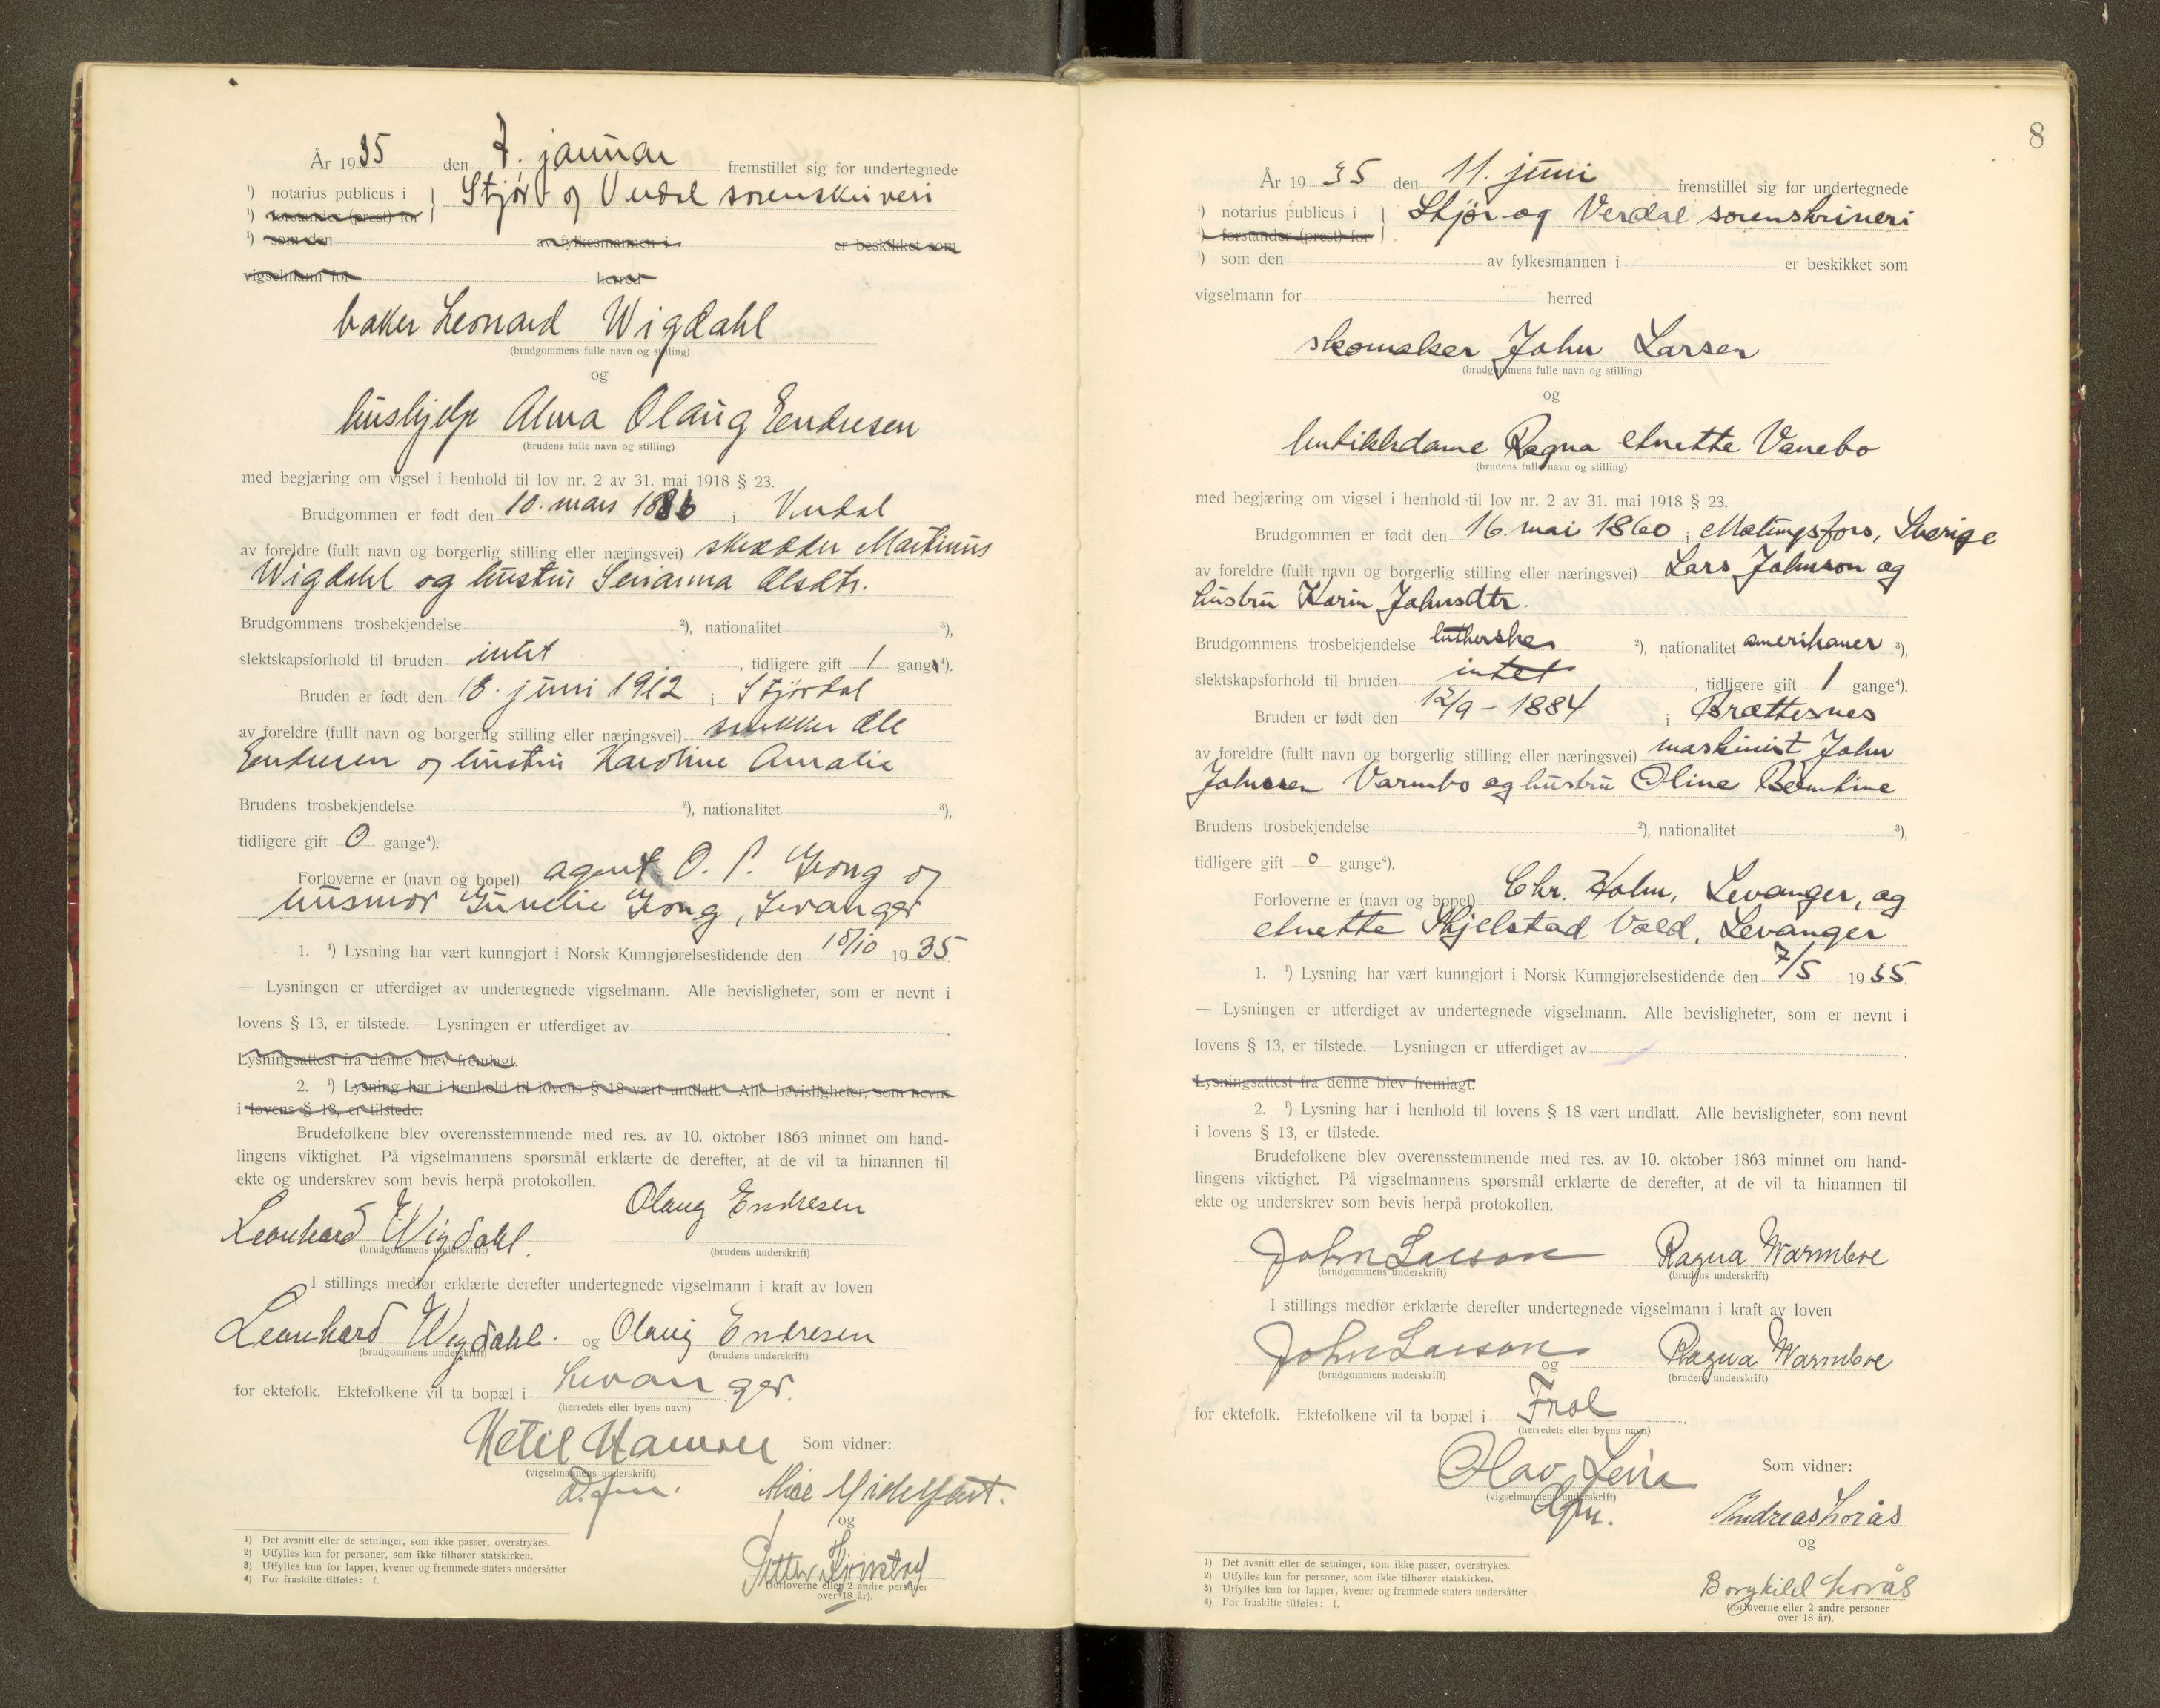 År 1935 den 7. januar fremstillet sig for undertegnede
¹) notarius publicus i } Stjør og Verdal sorenskriveri
¹) forstander (prest) for
¹) som den av fylkesmannen i er beskikket som
vigselmann for herred
baker Leonard Wigdahl
(brudgommens fulle navn og stilling)
og
hushjelp Alma Olaug Endresen
(brudens fulle navn og stilling)
med begjæring om vigsel i henhold til lov nr. 2 av 31. mai 1918 § 23.
Brudgommen er født den 10. mars 1886 i Verdal
av foreldre (fullt navn og borgerlig stilling eller næringsvei) skredder Martinus
Wigdahl og hustru Serianna Olsdtr.
Brudgommens trosbekjendelse ²), nationalitet ³),
slektskapsforhold til bruden intet, tidligere gift 1 gang⁴).
Bruden er født den 18. juni 1912 i Stjørdal
av foreldre (fullt navn og borgerlig stilling eller næringsvei) snekker Ole
Endresen og hustru Karoline Amalie
Brudens trosbekjendelse ²), nationalitet ³),
tidligere gift 0 gange⁴).
Forloverne er (navn og bopel) agent O. P. Grong og
husmor Gunelie Grong, Levanger
1. ¹) Lysning har vært kunngjort i Norsk Kunngjørelsestidende den 18/10 1935.
— Lysningen er utferdiget av undertegnede vigselmann. Alle bevisligheter, som er nevnt i
lovens § 13, er tilstede. — Lysningen er utferdiget av .
Lysningsattest fra denne blev fremlagt.
2. ¹) Lysning har i henhold til lovens § 18 vært undlatt. Alle bevisligheter, som nevnt
i lovens § 13, er tilstede.
Brudefolkene blev overensstemmende med res. av 10. oktober 1863 minnet om hand-
lingens viktighet. På vigselmannens spørsmål erklærte de derefter, at de vil ta hinannen til
ekte og underskrev som bevis herpå protokollen.
Leonhard Wigdahl. Olaug Endresen
(brudgommens underskrift) (brudens underskrift)
I stillings medfør erklærte derefter undertegnede vigselmann i kraft av loven
Leonhard Wigdahl. og Olaug Endresen
(brudgommens underskrift) (brudens underskrift)
for ektefolk. Ektefolkene vil ta bopæl i Levanger.
(herredets eller byens navn)
Ketil Hansen Som vidner:
(vigselmannens underskrift)
D.fm. Alice Midelfart.
og
Petter
(forloverne eller 2 andre personer
over 18 år).
1) Det avsnitt eller de setninger, som ikke passer, overstrykes.
2) Utfylles kun for personer, som ikke tilhører statskirken.
3) Utfylles kun for lapper, kvener og fremmede staters undersåtter
4) For fraskilte tilføies: f.
8
År 1935 den 11. juni fremstillet sig for undertegnede
¹) notarius publicus i } Stjør- og Verdal sorenskriveri
¹) forstander (prest) for
¹) som den av fylkesmannen i er beskikket som
vigselmann for herred
skomaker John Larsen
(brudgommens fulle navn og stilling)
og
butikkdame Ragna Anette Vanebo
(brudens fulle navn og stilling)
med begjæring om vigsel i henhold til lov nr. 2 av 31. mai 1918 § 23.
Brudgommen er født den 16. mai 1860 i Mølungsfors, Sverige
av foreldre (fullt navn og borgerlig stilling eller næringsvei) Lars Johnson og
hustru Karin Johnsdtr.
Brudgommens trosbekjendelse lutherske ²), nationalitet amerikaner ³),
slektskapsforhold til bruden intet, tidligere gift 1 gange⁴).
Bruden er født den 12/9 - 1884 i Brættesnes
av foreldre (fullt navn og borgerlig stilling eller næringsvei) maskinist John
Johnsen Varmbo og hustru Oline Berntine
Brudens trosbekjendelse ²), nationalitet ³),
tidligere gift 0 gange⁴).
Forloverne er (navn og bopel) Chr. Holm, Levanger, og
Anette Skjelstad Vold, Levanger
1. ¹) Lysning har vært kunngjort i Norsk Kunngjørelsestidende den 7/5 1935.
— Lysningen er utferdiget av undertegnede vigselmann. Alle bevisligheter, som er nevnt i
lovens § 13, er tilstede. — Lysningen er utferdiget av .
Lysningsattest fra denne blev fremlagt.
2. ¹) Lysning har i henhold til lovens § 18 vært undlatt. Alle bevisligheter, som nevnt
i lovens § 13, er tilstede.
Brudefolkene blev overensstemmende med res. av 10. oktober 1863 minnet om hand-
lingens viktighet. På vigselmannens spørsmål erklærte de derefter, at de vil ta hinannen til
ekte og underskrev som bevis herpå protokollen.
John Larson Ragna Warmboe
(brudgommens underskrift) (brudens underskrift)
I stillings medfør erklærte derefter undertegnede vigselmann i kraft av loven
John Larson og Ragna Warmboe
(brudgommens underskrift) (brudens underskrift)
for ektefolk. Ektefolkene vil ta bopæl i Frol.
(herredets eller byens navn)
Olav Som vidner:
(vigselmannens underskrift)
dfm. Andreas Lorås
og
Borghild Lorås
(forloverne eller 2 andre personer
over 18 år).
1) Det avsnitt eller de setninger, som ikke passer, overstrykes.
2) Utfylles kun for personer, som ikke tilhører statskirken.
3) Utfylles kun for lapper, kvener og fremmede staters undersåtter
4) For fraskilte tilføies: f.